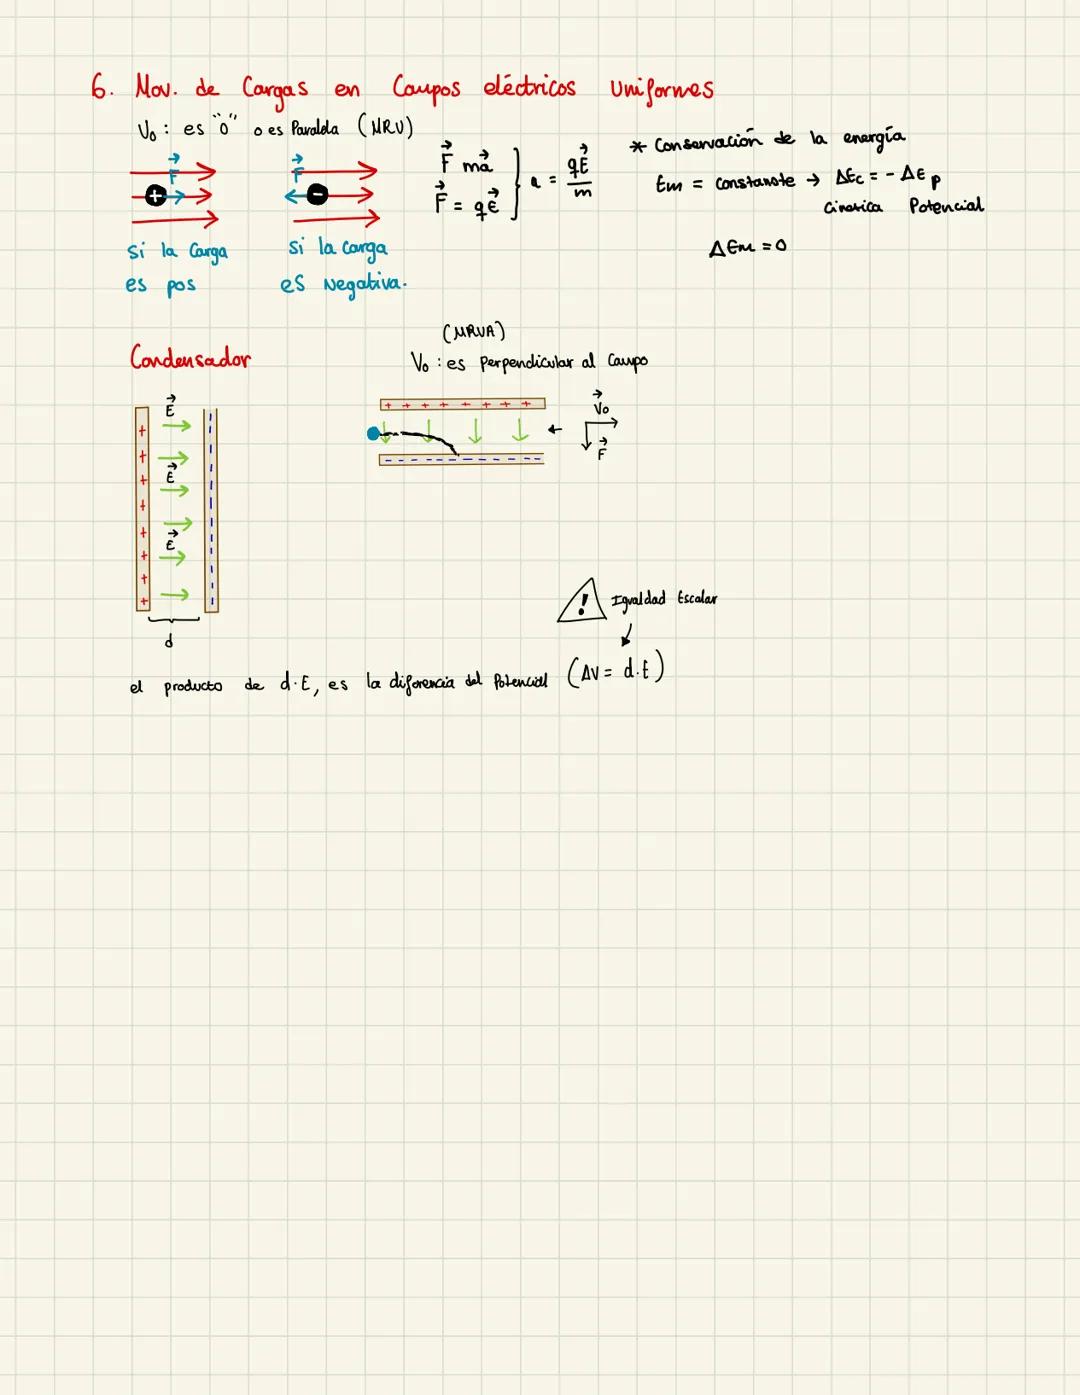 6. Mov. de Cargas en Campos eléctricos Uniformes
V₀ : es "0" o es Paralela (MRU)
F F
+ -
si la Carga es pos
si la carga es Negativa.
F⃗ ma⃗
F⃗ = qE⃗
a = qE⃗/m
* Conservación de la energía
Em = constanste → ΔEc = - ΔEp
Cinetica Potencial
ΔEm = 0
Condensador
E⃗
E⃗
E⃗
+ + + + + + + +
- - - - - - - -
d
(MRUA)
V₀ : es Perpendicular al Campo
+ + + + + + + +
- - - - - - - - - - - -
V₀⃗
F⃗
! Igualdad Escalar
el producto de d·E, es la diferencia del Potencial (ΔV = d.E)